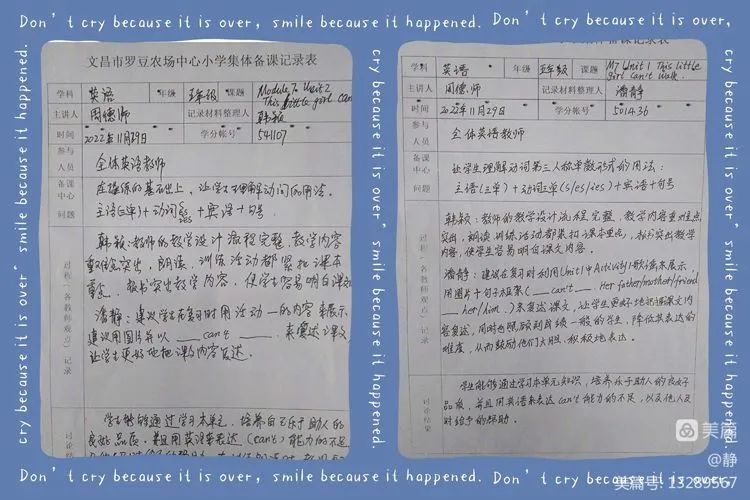 Don't cry because it is over, smile because it happened. Don't cry because it is over,
cry because it is over, smile because it happened.
文昌市罗豆农场中心小学集体备课记录表
学科 英语 年级 五年级 课题 Module 7 Unit 2
This little girl can
主讲人 周德师 记录材料整理人 韩颖
时间 2022年11月29日 学分帐号 541107
参与人员 全体英语教师
备课中心问题
在操练的基础上,让学生理解动词的用法。
主语(三单)+动词 s/es/ies +宾语+句号
过程(各教师观点)记录
韩颖:教师的教学设计流程完整,教学内容
突出,朗读、训练活动都紧扣课本
重点,板书突出教学内容,使学生容易明白课文
潘静:建议学生在复习时用活动一的内容来展示
建议用图片并以 ___ can't ___ 来复述课文
让学生更好地把课文内容表达。
讨论结果
学生能够通过学习本单元,培养自己乐于助人的
良好品质,并且用英语来表达(can't)能力的不足
备课记录表
学科 英语 年级 五年级 课题 M7 Unit 1 This little
girl can't walk.
主讲人 周德师 记录材料整理人 潘静
时间 2022年11月29日 学分帐号 501436
参与人员 全体英语教师
备课中心问题
让学生理解动词第三人称单数形式的用法:
主语(三单)+动词三单(s/es/ies)+宾语+句号
过程(各教师观点)记录
韩颖:教师的教学设计流程完整,教学内容重难点
突出,朗读、训练活动都紧扣课本重点,板书突出教学
内容,使学生容易明白课文内容。
潘静:建议在复习时利用Unit1中Activity1歌谣来展示
用图片+句子框架(___ can't ___. Her father/mother/friend
___ her/him.)来复述课文,让学生更好地把课文内
容复述,同时也照顾到成绩一般的学生,降低其表达的
难度,从而鼓励他们大胆、积极地表达。
讨论结果
学生能够通过学习本单元知识,培养乐于助人的良好
品质,并且用英语来表达can't能力的不足,以及他人及
时给予的帮助。
cry because it is over, smile because it happened.
Don't cry because it is over, smile because it happened. Don't cry because it is over,
美篇
@静
美篇号: 13289567